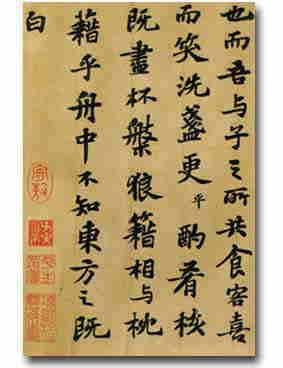 也而吾与子之所共食客喜
而笑洗盞更平酌肴核
既盡杯槃狼籍相与枕
籍乎舟中不知東方之既
白